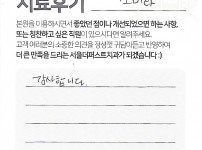 치료후기
본원을 이용하시면서 좋았던 점이나 개선되었으면 하는 사항,
또는 칭찬하고 싶은 직원이 있으시다면 알려주세요.
고객 여러분의 소중한 의견을 정성껏 귀담아듣고 반영하여
더 큰 만족을 드리는 서울더퍼스트치과가 되겠습니다 :)
감사합니다.